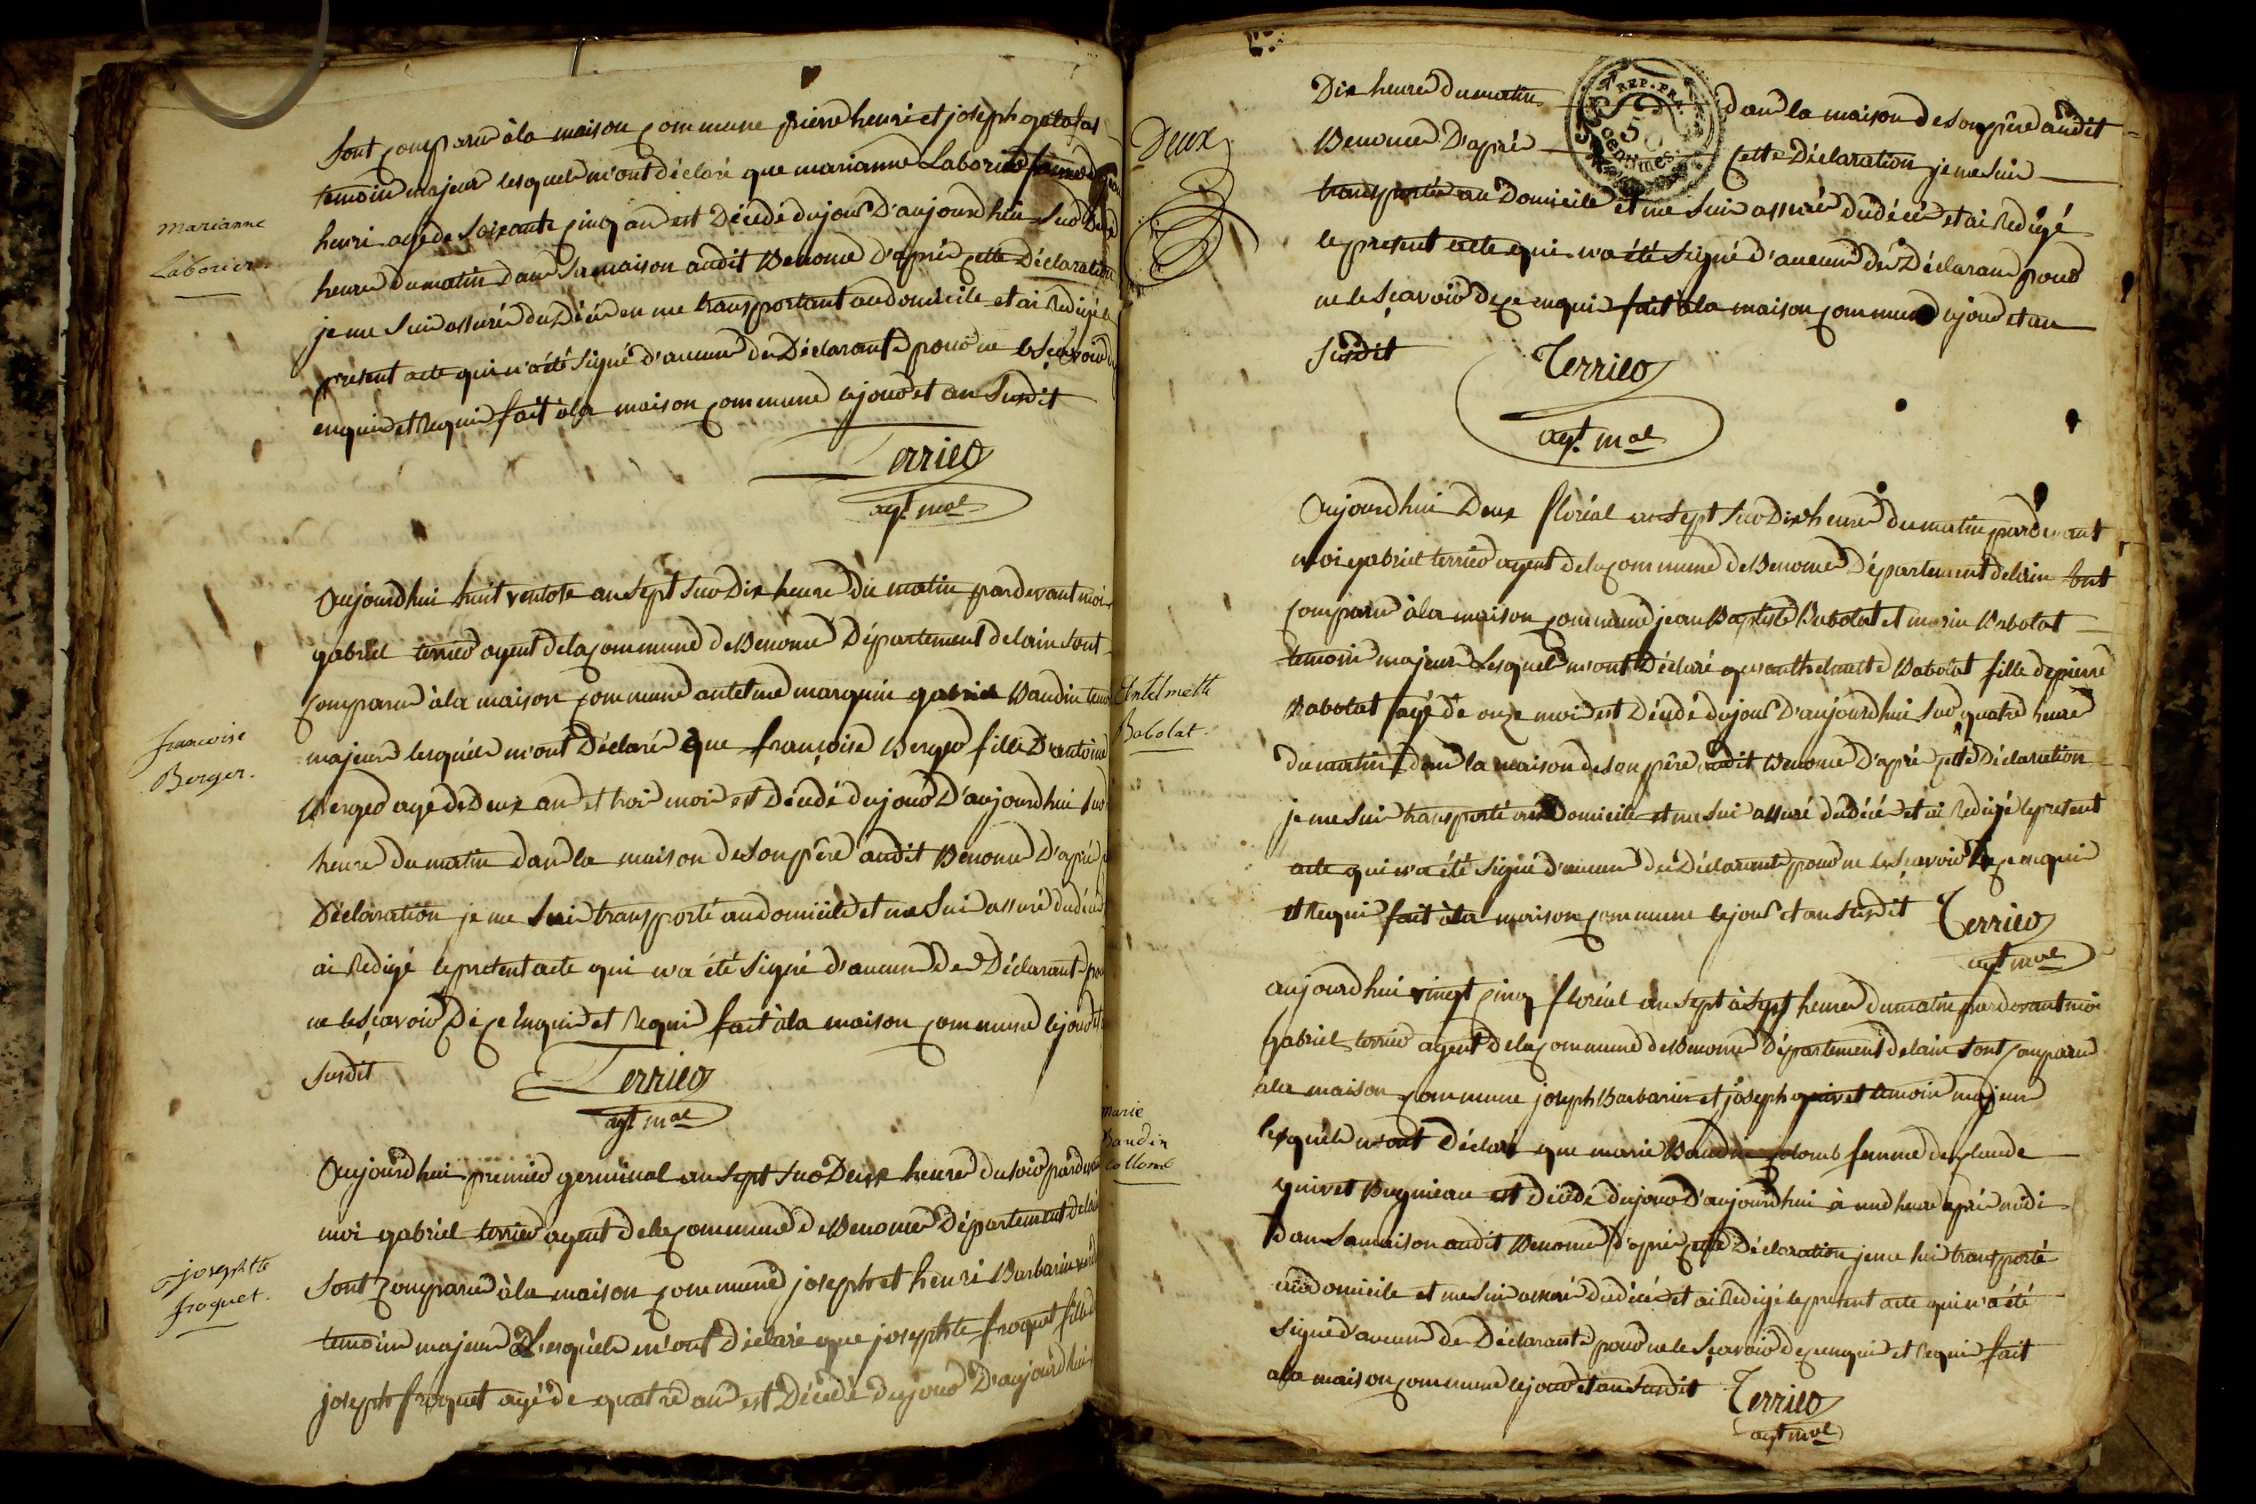 Sont comparu à la maison commune pierre henri et joseph
temoin majeur lesquels m'ont déclaré que marianne Laborier femme de
henri agé de soixante cinq an est décédé du jour d'aujourd'hui sur deux
heure du matin dans sa maison audit Benome d'aprè cette déclaration
je me suis assuré du décé en me transportant au domicile et ai redigé le
présent acte qui n'a été signé d'aucun des déclarants pour ne le sçavoir de
enquis et requis fait à la maison commune le jour et an susdit
Terrier
agt. mal
marianne
Laborier.
Aujourdhui huit ventose an sept sur dix heure du matin pardevant moi
gabriel terrier agent de la commune de Benome Département de lain sont
comparu à la maison commune antelme marquin gabriel Baudin temoin
majeur lesquels m'ont déclaré que françoise Berger fille d'antoine
Berger agé de deux an et troi moi est décédé du jour d'aujourdhui sur
heure du matin dans la maison de son père audit Benome d'aprè
Déclaration je me suis transporté au domicile et me suis assuré du décé
ai redigé le présent acte qui n'a été signé d'aucun des Déclarant pour
ne le sçavoir de ce enquis et requis fait à la maison commune le jour et
susdit
Terrier
agt mal
francoise
Berger.
Aujourdhui premier germinal an sept sur deux heure du soir pardevant
moi gabriel terrier agent de la commune de Benome Département de lain
sont comparu à la maison commune joseph et henri Barbarin
temoin majeur Lesquels m'ont déclaré que josephte froquet fille de
joseph froquet agé de quatre an est Décédé du jour d'aujourdhui
josephte
froquet.
Deux
REP. FRA.
50
CENTIMES
Dix heure du matin dans la maison de son père audit
Benome D'aprè cette Déclaration je me suis
transporté au Domicile et me suis assuré du décé et ai redigé
le present acte qui n'a été signé d'aucun des Déclarans pour
ne le sçavoir de ce enquis fait à la maison commune le jour et an
susdit
Terrier
agt. mal
Aujourdhui Deux floréal an sept sur Dix heure du matin pardevant
moi gabriel terrier agent de la commune de Benome Département de lain sont
comparu à la maison commune jean Baptiste Babolat et marin Babolat
temoin majeur Lesquels m'ont Déclaré que anthelmette Babolat fille de pierre
Babolat agé de onze moi est Décédé du jour d'aujourdhui sur quatre heure
du matin dans la maison de son père audit Benome D'aprè cette Déclaration
je me suis transporté au Domicile et me suis assuré du décé et ai redigé le present
acte qui n'a été signé d'aucun des Déclarants pour ne le sçavoir de ce enquis
et requis fait à la maison commune le jour et an susdit
Terrier
agt mal
Antelmette
Babolat.
aujourdhui vingt cinq floréal an sept à sept heures du matin pardevant moi
gabriel terrier agent de la commune de Benome Département de lain sont comparu
à la maison commune joseph Barbarin et joseph quivet temoin majeur
lesquels m'ont Déclaré que marie Baudin colomb femme de claude
quivet Bugnieau est Décédé du jour d'aujourdhui à une heure aprè midi
dans sa maison audit Benome d'aprè cette Déclaration je me suis transporté
au domicile et me suis assuré du décé et ai redigé le present acte qui n'a été
signé d'aucun des Déclarants pour ne le sçavoir de ce enquis et requis fait
à la maison commune le jour et an susdit
Terrier
agt mal
marie
Baudin
Collomb